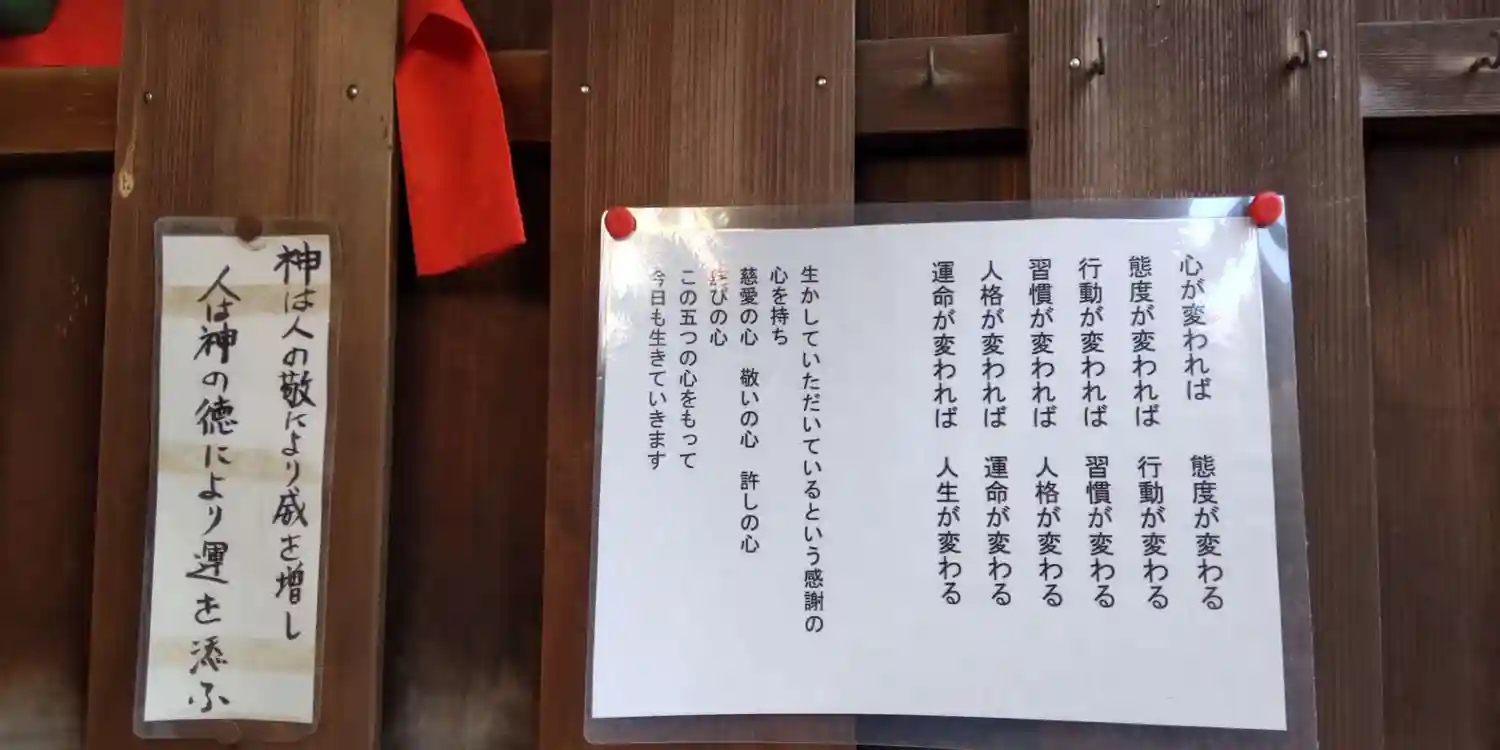 心が変われば　態度が変わる
態度が変われば　行動が変わる
行動が変われば　習慣が変わる
習慣が変われば　人格が変わる
人格が変われば　運命が変わる
運命が変われば　人生が変わる
生かしていただいているという感謝の
心を持ち
慈愛の心　敬いの心　許しの心
びの心
この五つの心をもって
今日も生きていきます
神は人の敬により威を増し
人は神の徳により運を添ふ